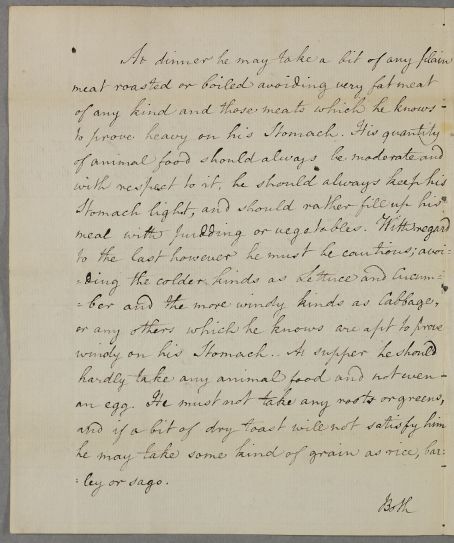 At dinner he may take a bit of any plain
meat roasted or boiled avoiding very fat meat
of any kind and those meats which he knows-
to prove heavy on his Stomach. His quantity
of animal food should always be moderate and
with respect to it, he should always keep his
Stomach light, and should rather fill up his
meal with pudding or vegetables. With regard
to the last however he must be cautious; avoi-
=ding the colder kinds as Lettuce and Cucum-
=ber and the more windy kinds as Cabbage,
or any others which he knows are apt to prove
windy on his Stomach.. At supper he should
hardly take any animal food and not even-
an egg. He must not take any roots or greens,
and if a bit of dry toast will not satisfy him
he may take some kind of grain as rice, bar-
=ley or sago.
Both